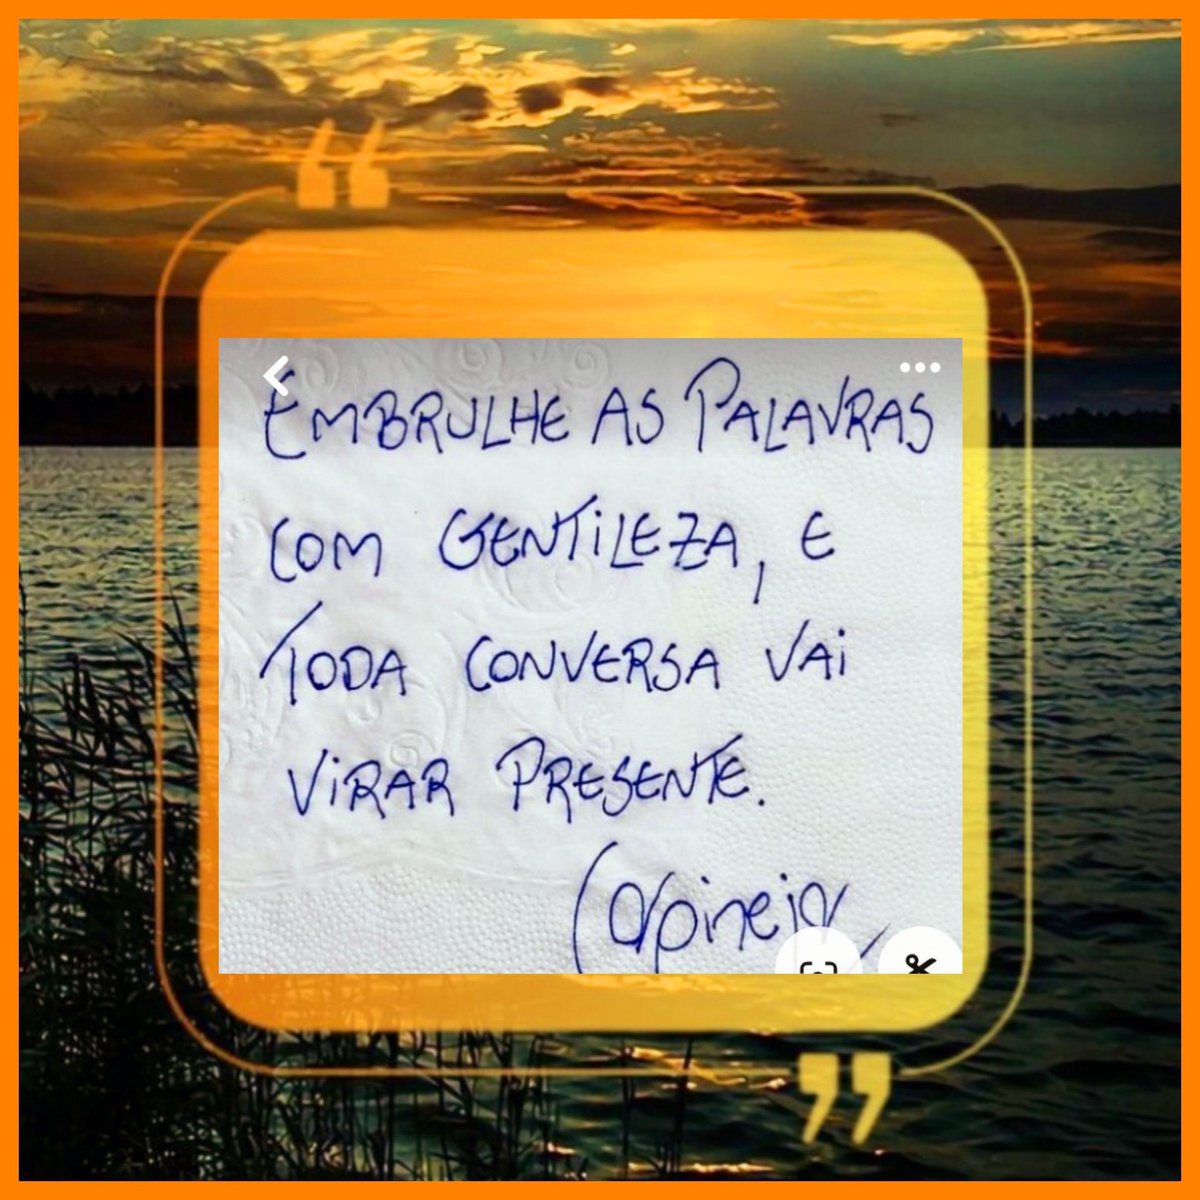 “
EMBRULHE AS PALAVRAS
COM GENTILEZA, E
TODA CONVERSA VAI
VIRAR PRESENTE.
Carpinejar
”